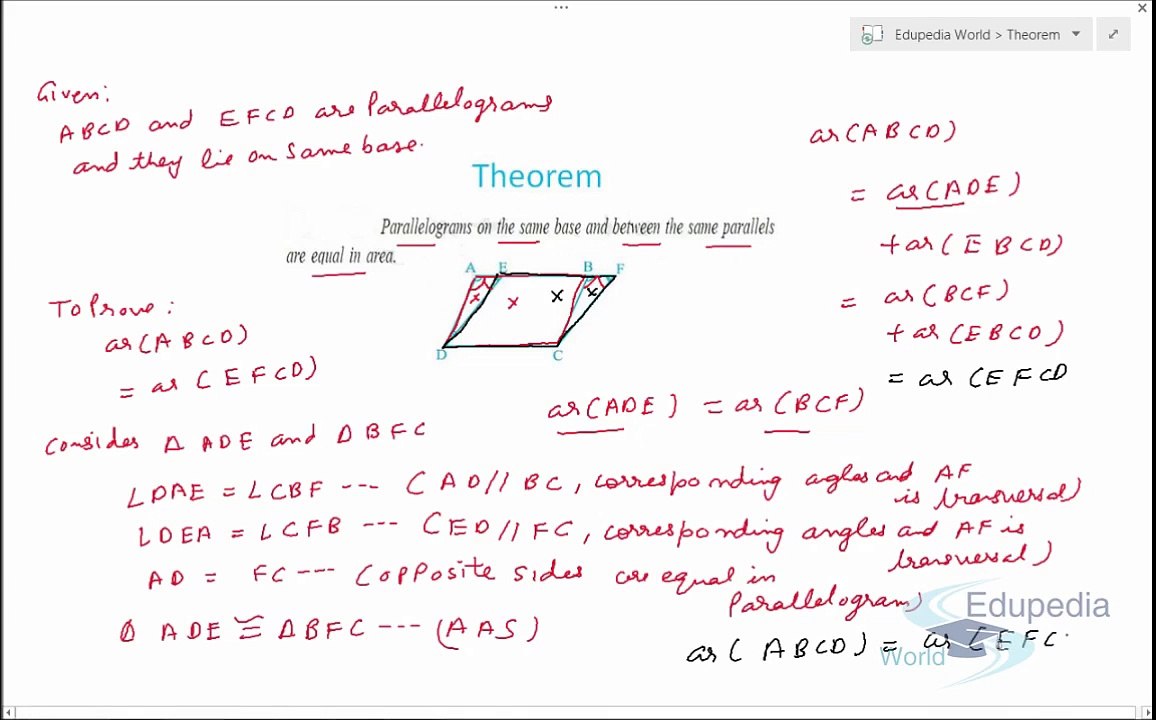 Edupedia World > Theorem
Given:
ABCD and EFCD are Parallelograms
and they lie on same base.
Theorem
Parallelograms on the same base and between the same parallels
are equal in area.
A E B F
D C
To Prove:
ar(ABCD)
= ar (EFCD)
ar(ABCD)
= ar(ADE)
+ar(EBCD)
= ar(BCF)
+ar(EBCD)
= ar (EFCD
ar(ADE) = ar(BCF)
Consider Δ ADE and ΔBFC
∠DAE = ∠CBF --- (AD//BC, corresponding angles and AF
is transversal)
∠DEA = ∠CFB --- (ED//FC, corresponding angles and AF is
transversal)
AD = FC --- (opposite sides are equal in
Parallelogram)
Δ ADE ≅ ΔBFC --- (AAS)
ar(ABCD) = ar(EFC
Edupedia
World